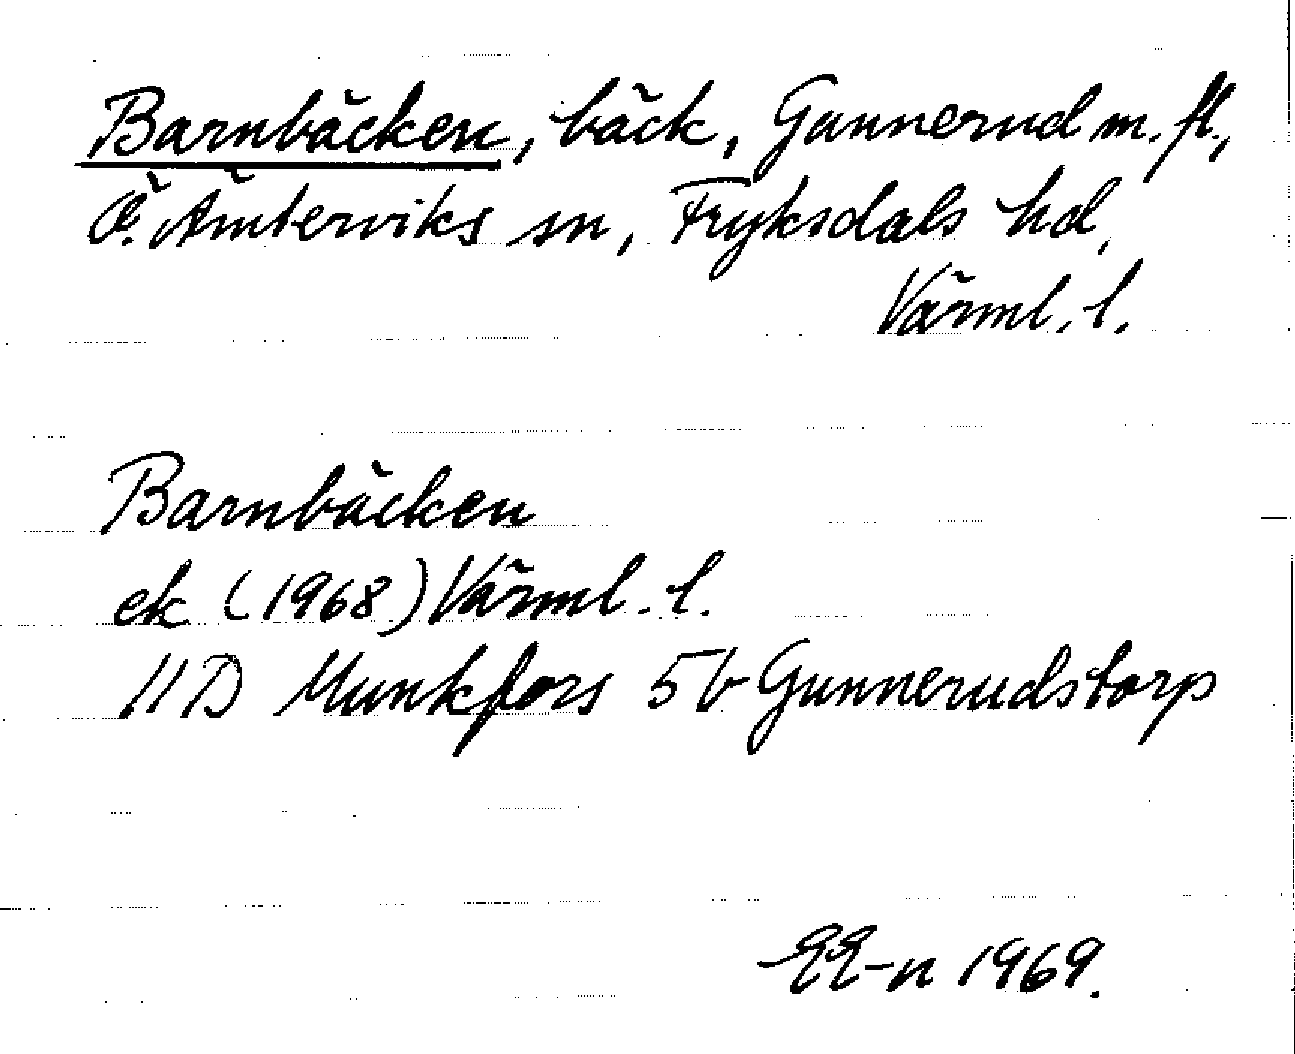 Barnbäcken, bäck, Gunnerud m. fl.,
Ö. Ämterviks sn, Fryksdals hd,
Värml. l.
Barnbäcken
ek (1968) Värml. l.
11D Munkfors 5b Gunnerudstorp
EE-n 1969.